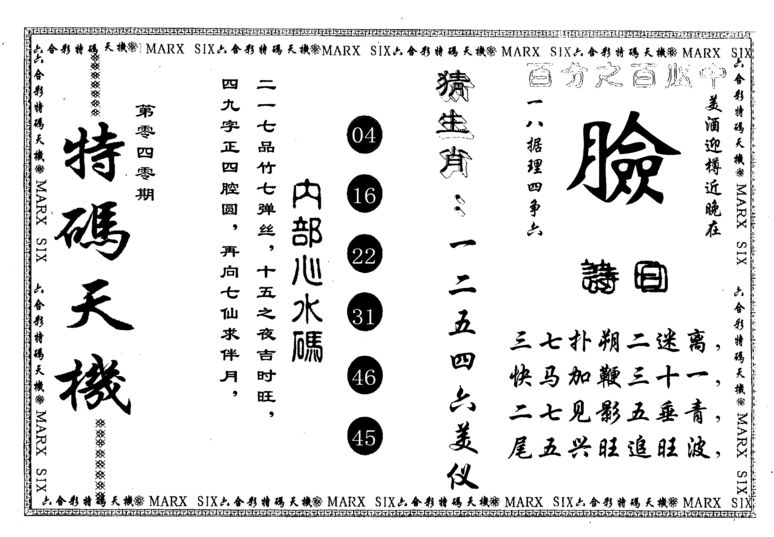 六合彩特碼天機❊ MARX SIX六合彩特碼天機❊MARX SIX六合彩特碼天機❊ MARX SIX六合彩特碼天機❊ MARX SIX
六合彩特碼天機❊ MARX SIX 六合彩特碼天機❊ MARX SIX
特碼天機
第零四零期
二一七品竹七弹丝，十五之夜吉时旺，
四九字正四腔圆，再向七仙求伴月，
内部心水碼
04
16
22
31
46
45
猜生肖：一二五四六美仪
百分之百必中
美酒迎樽近晚在
臉
一八据理四争六
詩曰
三七扑朔二迷离，
快马加鞭三十一，
二七见影五垂青，
尾五兴旺追旺波，
六合彩特碼天機❊ MARX SIX 六合彩特碼天機❊ MARX SIX
六合彩特碼天機❊ MARX SIX六合彩特碼天機❊ MARX SIX六合彩特碼天機❊ MARX SIX六合彩特碼天機❊ MARX SIX